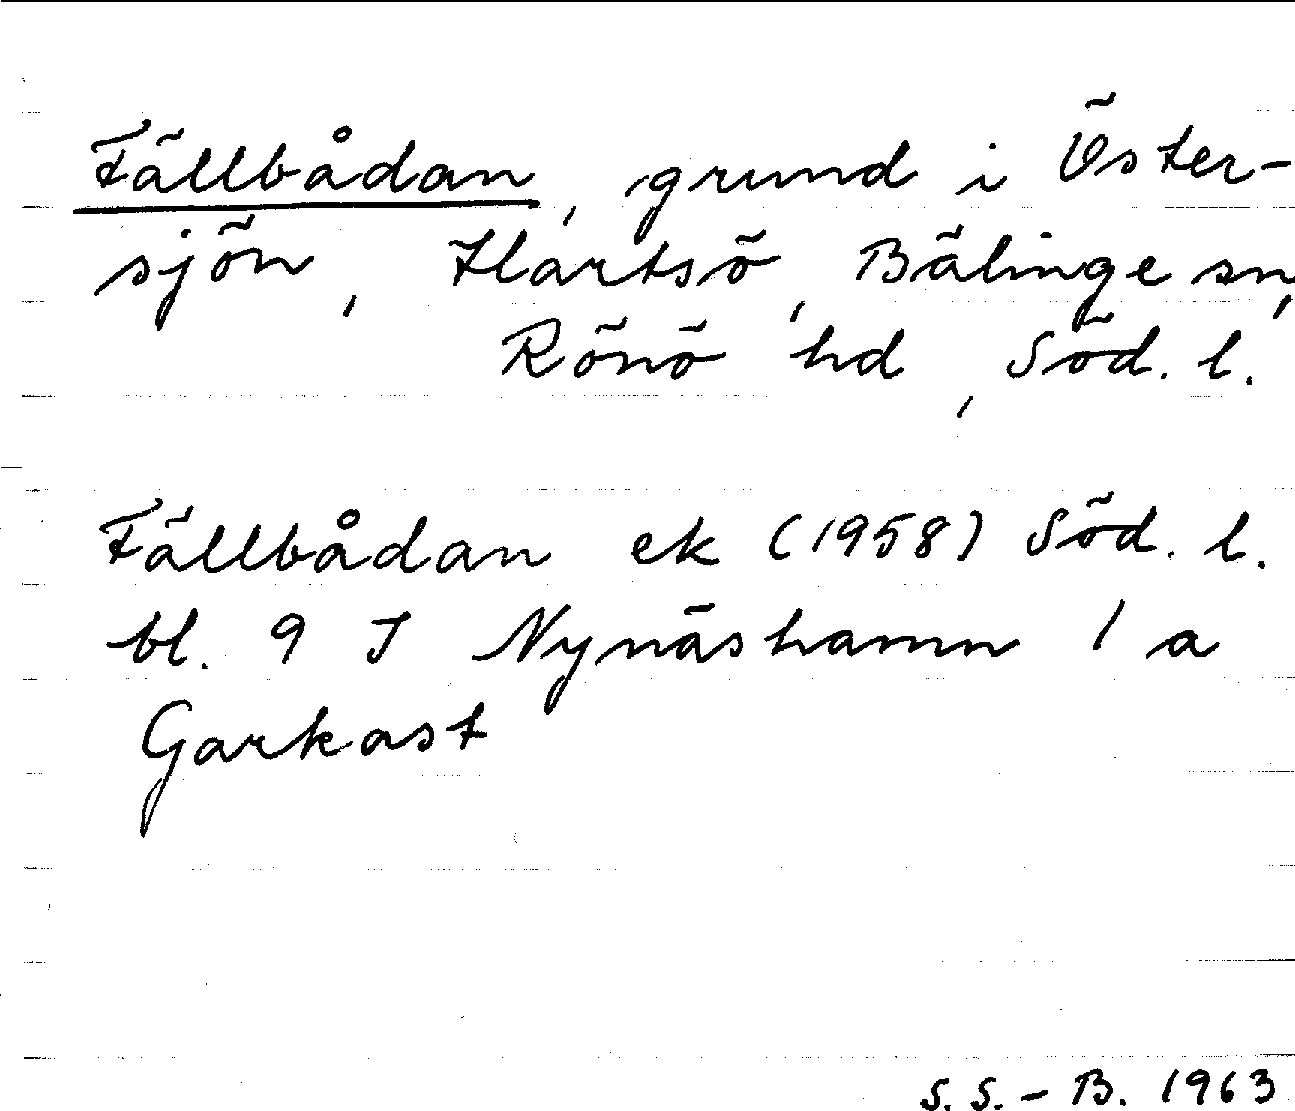 Fällbådan, grund i Öster-
sjön, Hartsö, Bälinge sn,
Rönö hd, Söd. l.
Fällbådan ek (1958) Söd. l.
bl. 9 I Nynäshamn 1 a
Garkast
S. S. - B. 1963